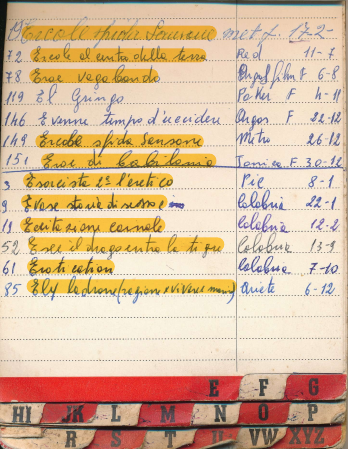 19 Ercole sfida Sansone met f. 17-2-
72 Ercole al centro della terra Red 11-7
78 Eroe vagabondo film F 6-8
119 El Gringo Poker F 4-11
146 E venne tempo d'uccidere Orgos F 22-12
149 Ercole sfida Sansone Metro 26-12
151 Eroe di Babilonia Jonica F 30-12
3 Esorcista 2° l'eretico Pic 8-1
9 Evase storia di sesso e Calabria 22-1
19 Eccitazione carnale Calabria 12-2
52 Esce il drago entra la tigre Calabria 13-9
61 Erotication Calabria 7-10
85 Ely ladrone Ariete 6-12
E F G
HI JK L M N O P
R S T U VW XYZ